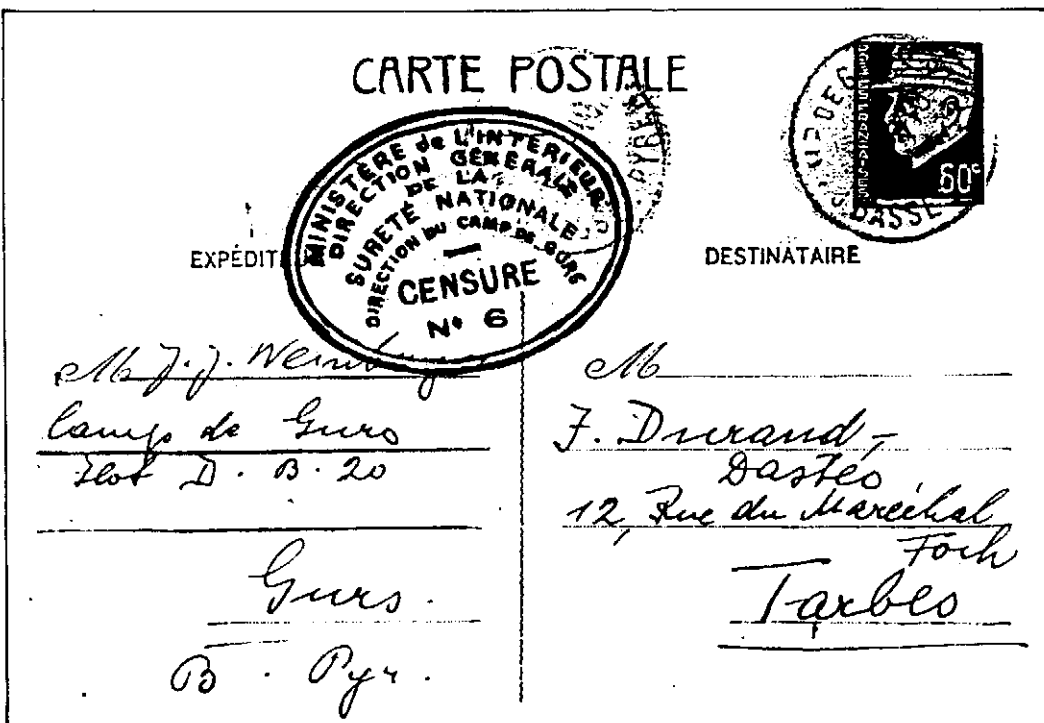 CARTE POSTALE
60c
MINISTÈRE de L'INTÉRIEUR
DIRECTION GÉNÉRALE
DE LA
SURETÉ NATIONALE
DIRECTION DU CAMP DE GURS
CENSURE
N° 6
EXPÉDIT
DESTINATAIRE
M J. J.
Camp de Gurs
Ilot D. B. 20
Gurs.
B. Pyr.
M
J. Durand-
Dastès
12, Rue du Maréchal
Foch
Tarbes